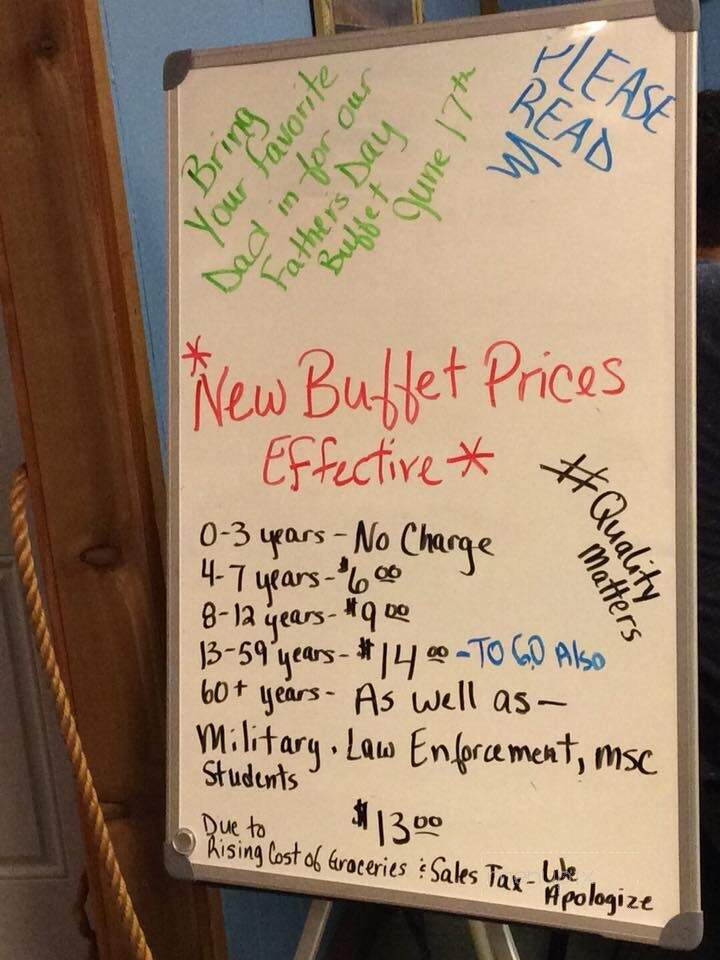 Bring
Your favorite
Dad in for our
Fathers Day
Buffet June 17th
PLEASE
READ
*New Buffet Prices
Effective*
#Quality
Matters
0-3 years - No Charge
4-7 years - $6.00
8-12 years - $9.00
13-59 years - $14.00 - TO GO Also
60+ years - As well as -
Military, Law Enforcement, msc
Students
$13.00
Due to
Rising Cost of Groceries & Sales Tax - We
Apologize